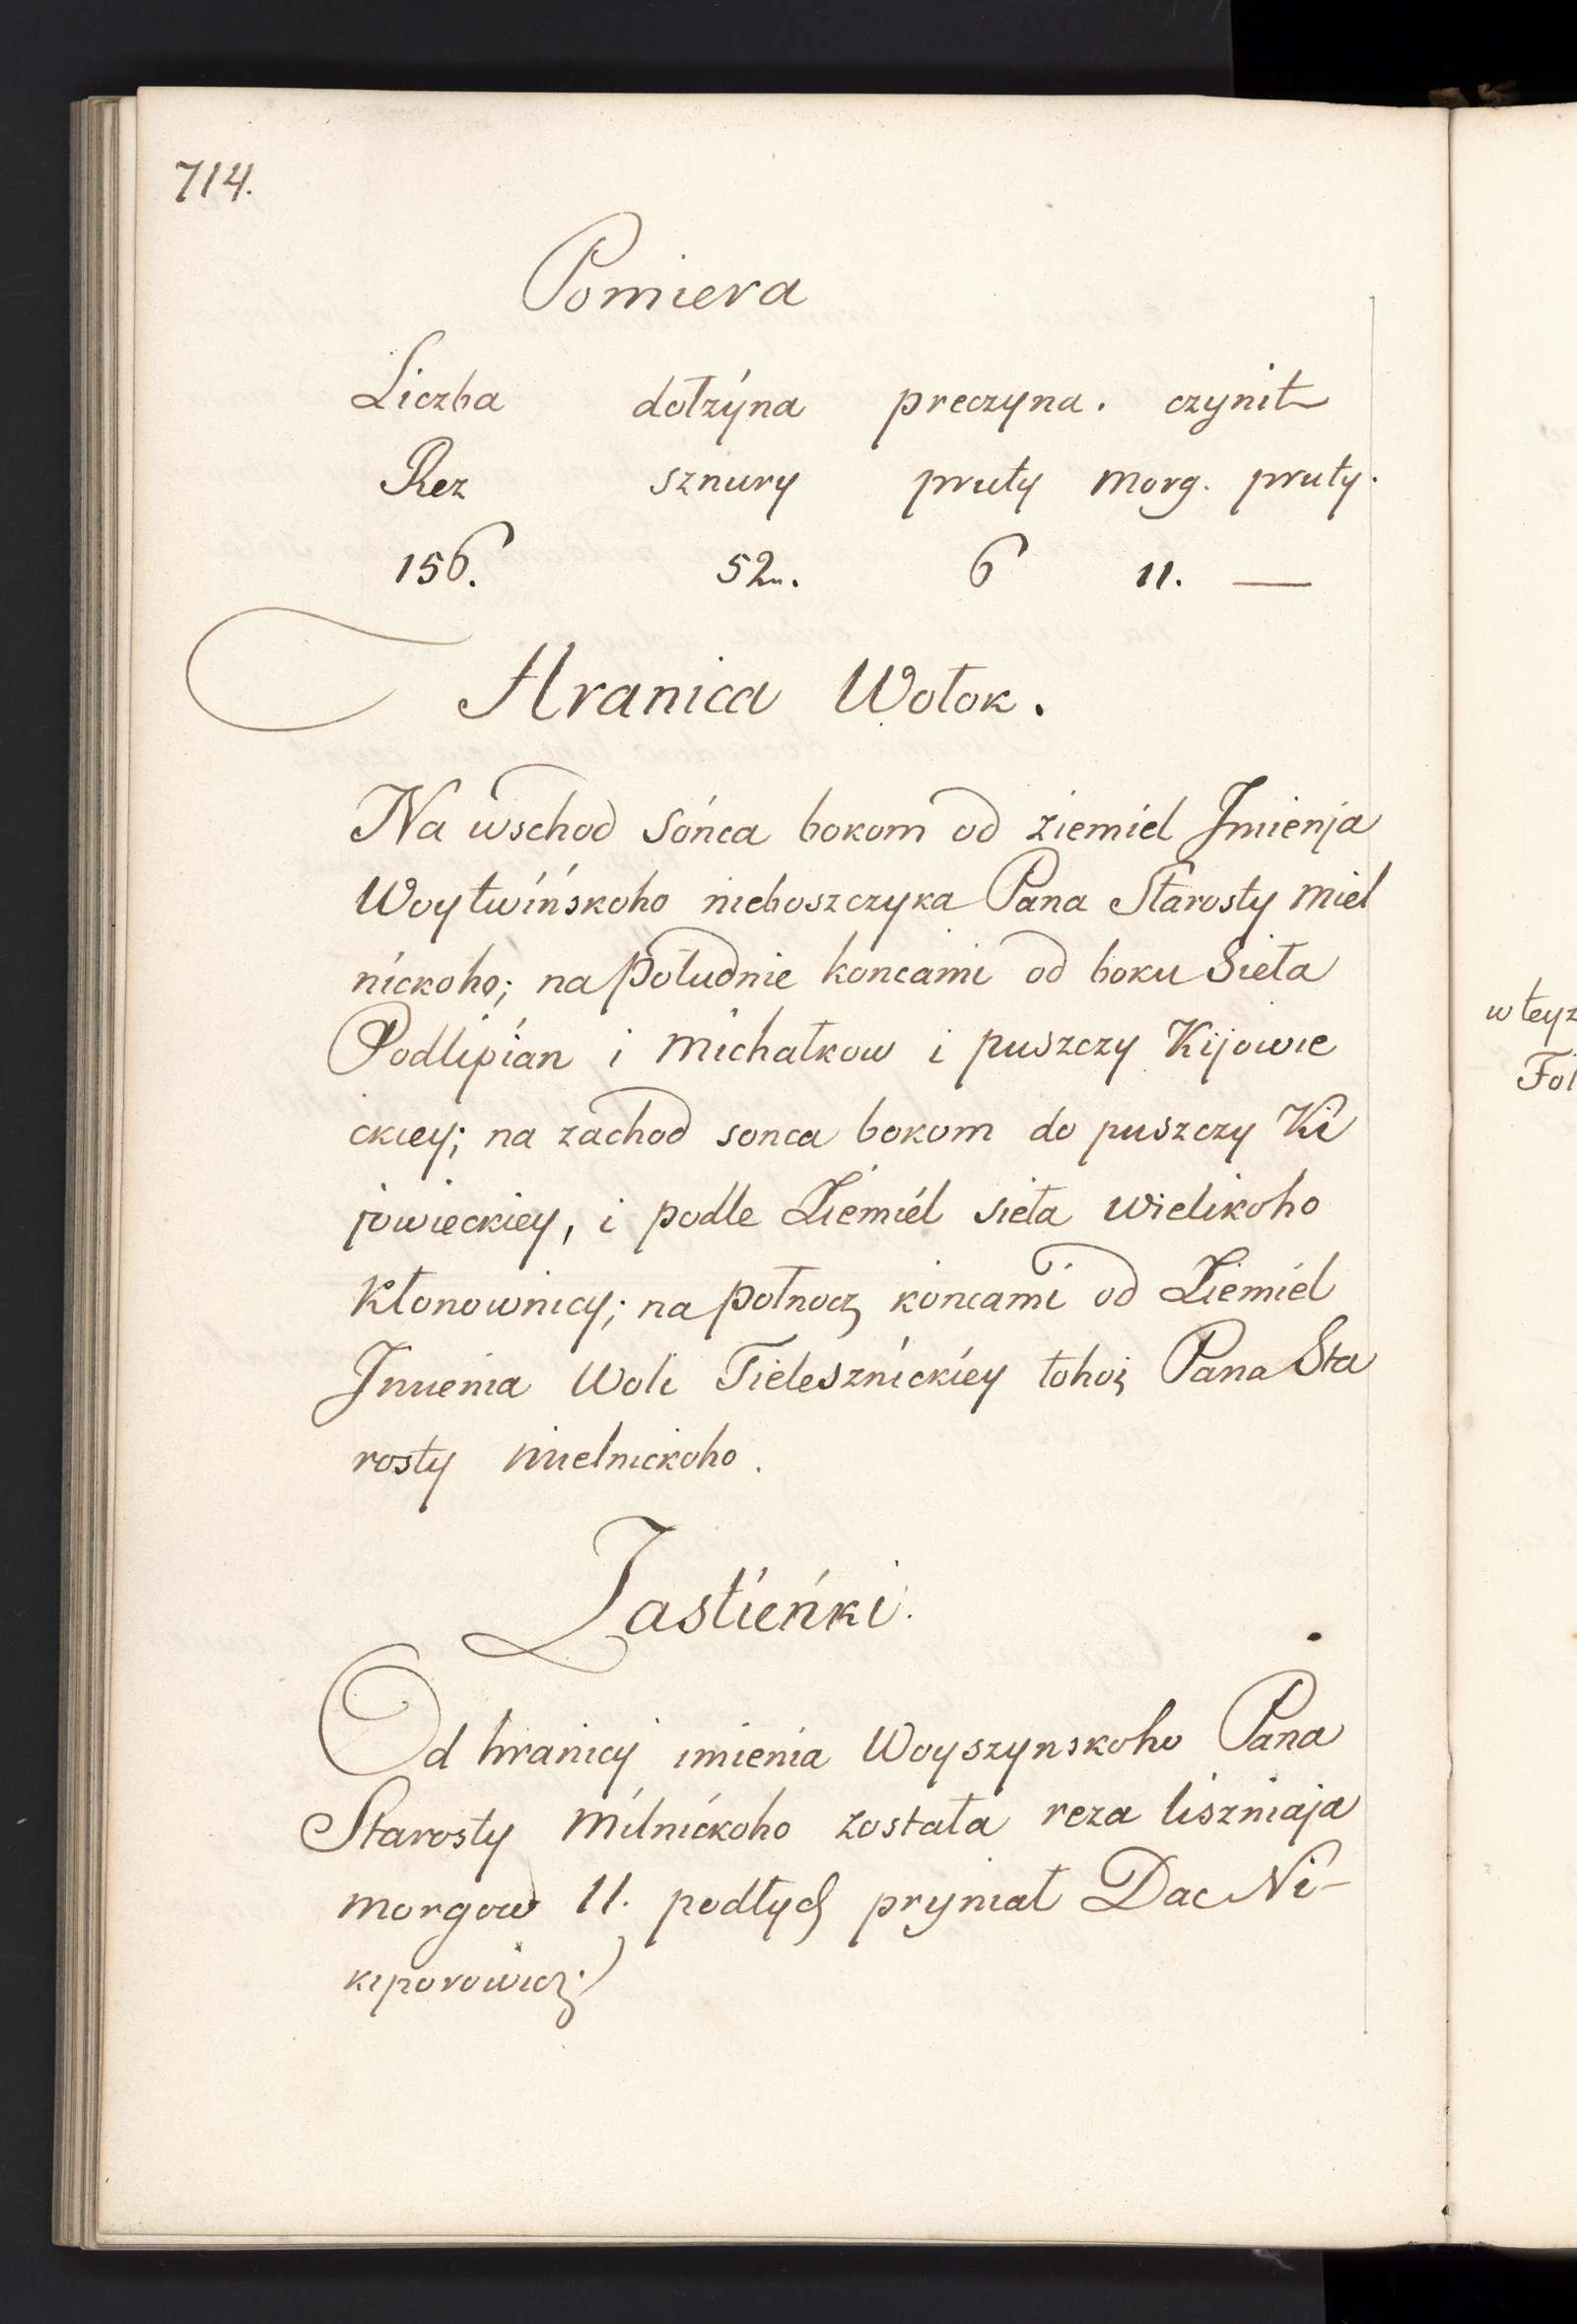 714.
Pomiera
Liczba dołzyna preczyna. czynit
Rez sznury pruty morg. pruty.
156. 52. 6 11. —
Hranica Wołok.
Na wschod Sońca bokom od ziemiel Jmienja
Woytwińskoho nieboszczyka Pana Starosty miel
nickoho; na południe koncami od boku Sieła
Podlipian i Michałkow i puszczy Kijowie
ckiey; na zachod sonca bokom do puszczy Ki
jowieckiey, i podle Ziemiel sieła Wielikoho
Kłonownicy; na połnocz koncami od Ziemiel
Jmienia Woli Tieleszníckiey tohoż Pana Sta
rosty mielnickoho.
Zastieńki.
Od hranicy imienia Woyszynskoho Pana
Starosty Milnickoho została reza liszniaja
morgow 11. podłych pryniał Dac Ni-
kiporowicz.
w teyz
Fol